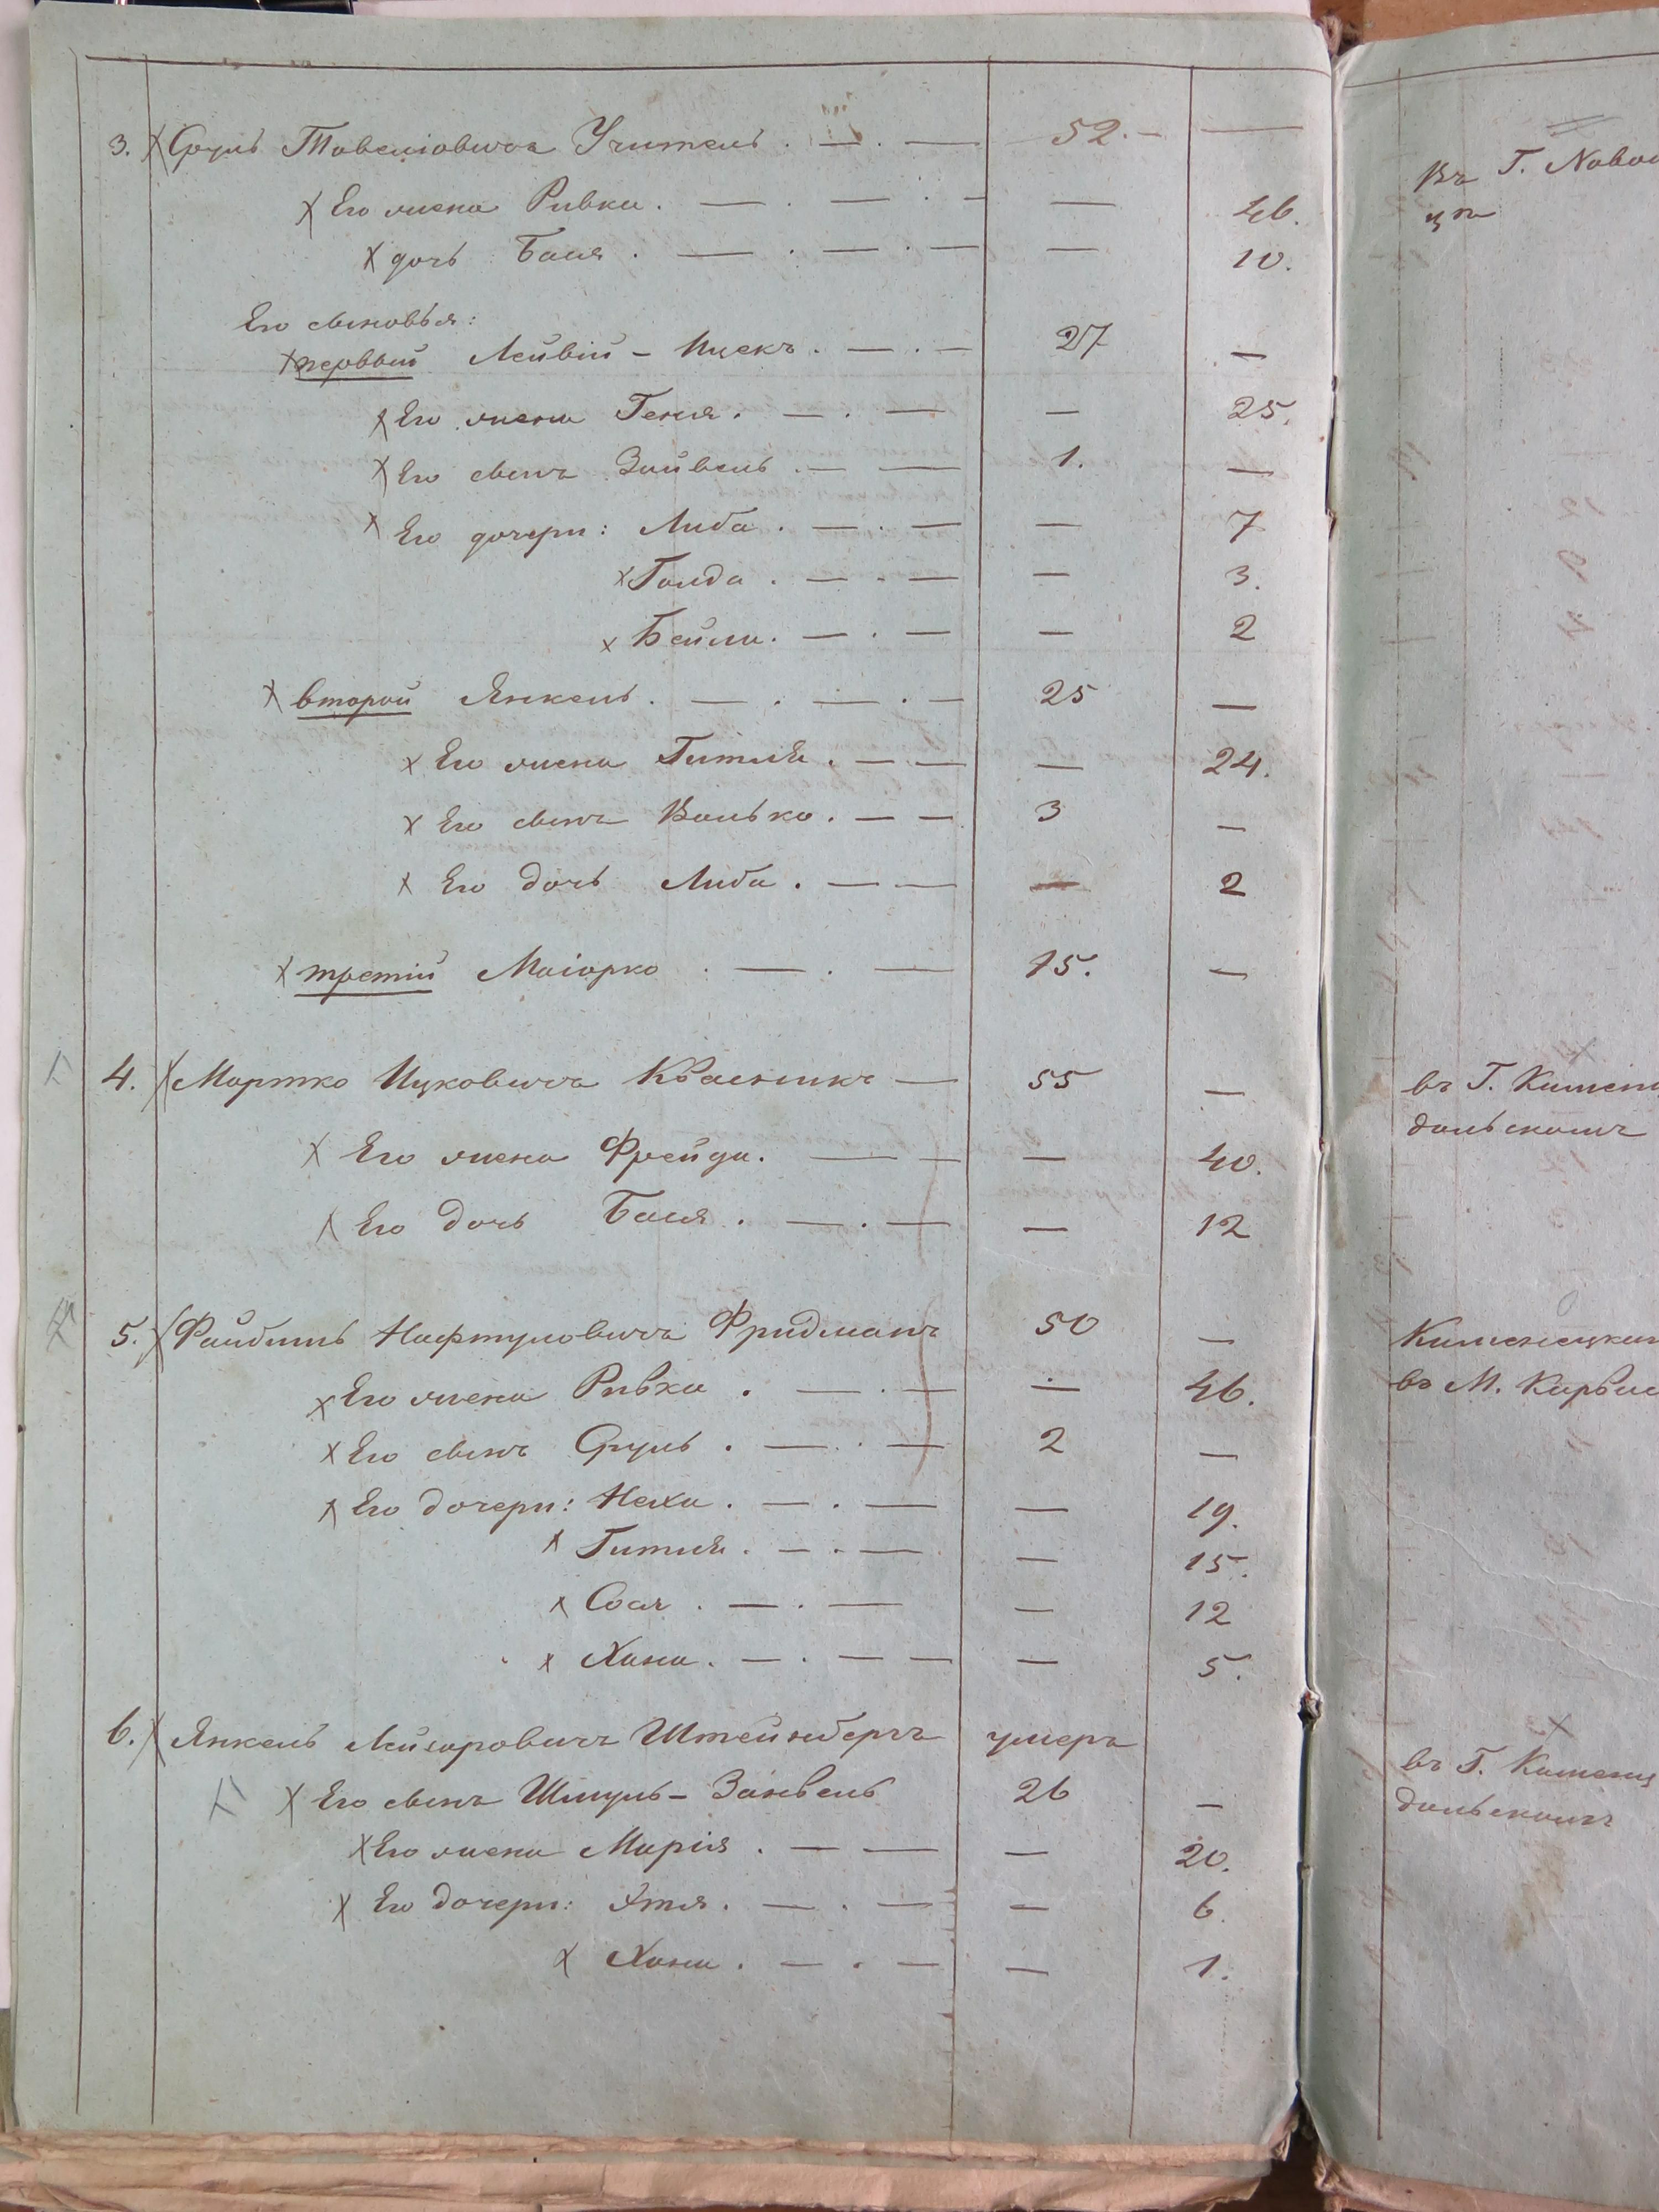 3. Сруль Товеліовичъ Учитель . — . — 52. — —
Его жена Ривка . — . — . - — 46.
дочь Бася . — . — . — — 10.
Его сыновья:
первый Лейвій - Ицекъ . — . — 27 —
Его жена Геня . — . — — 25.
Его сынъ Зайвель . — — 1. —
Его дочери: Либа . — . — — 7
Голда . — . — — 3.
Бейла . — . — — 2
второй Янкель . — . — . — 25 —
Его жена Гитля . — — — 24.
Его сынъ Волько . — — 3 —
Его дочь Либа . — — — 2
третій Маіорко . — . — 15. —
4. Мортко Ицковичъ Квасникъ — 55 —
Его жена Фрейда . — — — 40.
Его дочь Бася . — . — — 12
5. Файбишъ Нафтуловичъ Фридманъ 50 —
Его жена Ривка . — . — — 46.
Его сынъ Сруль . — . — 2 —
Его дочери: Неха . — . — — 19.
Гитля . — . — — 15.
Сося . — . — — 12
Хана . — . — — — 5.
6. Янкель Лейзоровичъ Штейнбергъ умеръ
Его сынъ Шмуль - Занвель 26 —
Его жена Марія . — — — 20.
Его дочери: Этля . — . — — 6.
Хана . — . — — 1.
Въ Г.
въ Г.
дольскомъ
въ М.
въ Г.
дольскомъ